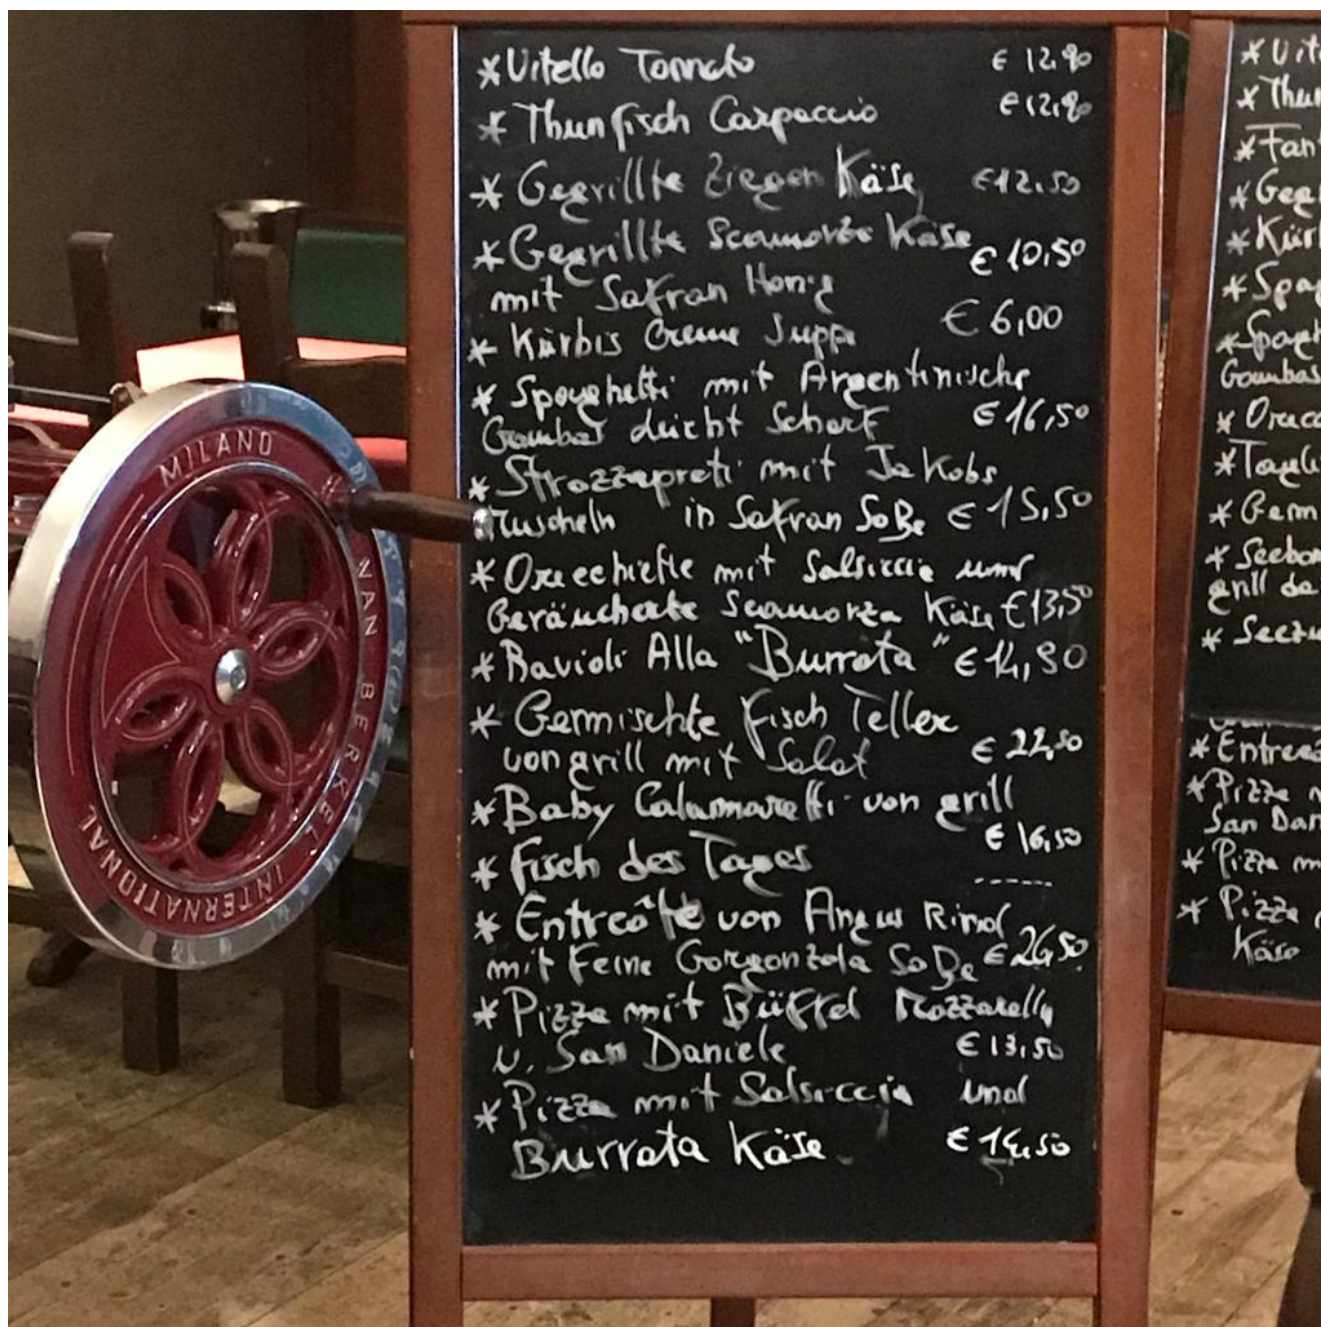 *Vitello Tonnato € 12,90
* Thunfisch Carpaccio € 12,90
* Gegrillte Ziegen Käse €12.50
*Gegrillte Scamorza Käse
mit Safran Honig € 10,50
* Kürbis Creme Suppe € 6,00
* Spaghetti mit Argentinische
Gambas leicht Scharf € 16,50
* Strozzapreti mit Jakobs
Muscheln in Safran Soße € 15,50
*Orecchiette mit Salsiccia und
Geräucherte Scamorza Käse €13,50
*Ravioli Alla "Burrata" € 14,90
* Gemischte Fisch Teller
von grill mit Salat € 22,50
*Baby Calamaretti von grill
€ 16,50
* Fisch des Tages -----
* Entrecôte von Angus Rind
mit Feine Gorgonzola Soße € 26,50
*Pizza mit Büffel Mozzarella
u. San Daniele € 13,50
*Pizza mit Salsiccia und
Burrata Käse € 14,50
MILANO
VAN BERKEL
INTERNATIONAL
* Vit
* Thun
*
* Geg
* Kürb
* Spag
*Spagh
Gambas
* Orecc
*Tagli
* Gem
*
grill
*
*Entrecô
*Pizza m
San Dan
* Pizza m
* Pizza
Käse